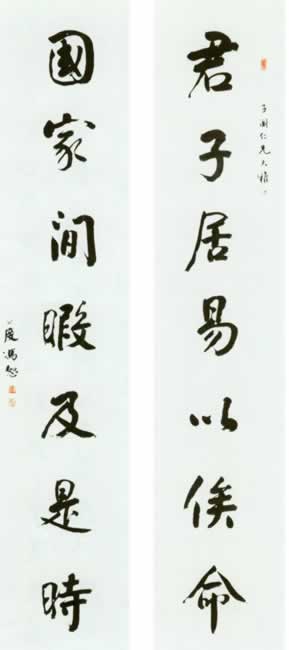 君子居易以俟命
子仁兄大雅
國家閒暇及是時
公度馮恕